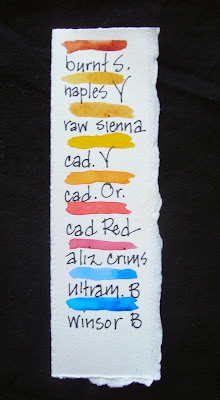 burnt S.
naples Y
raw sienna
cad. Y
cad. Or.
cad Red
aliz crims
ultram. B
Winsor B